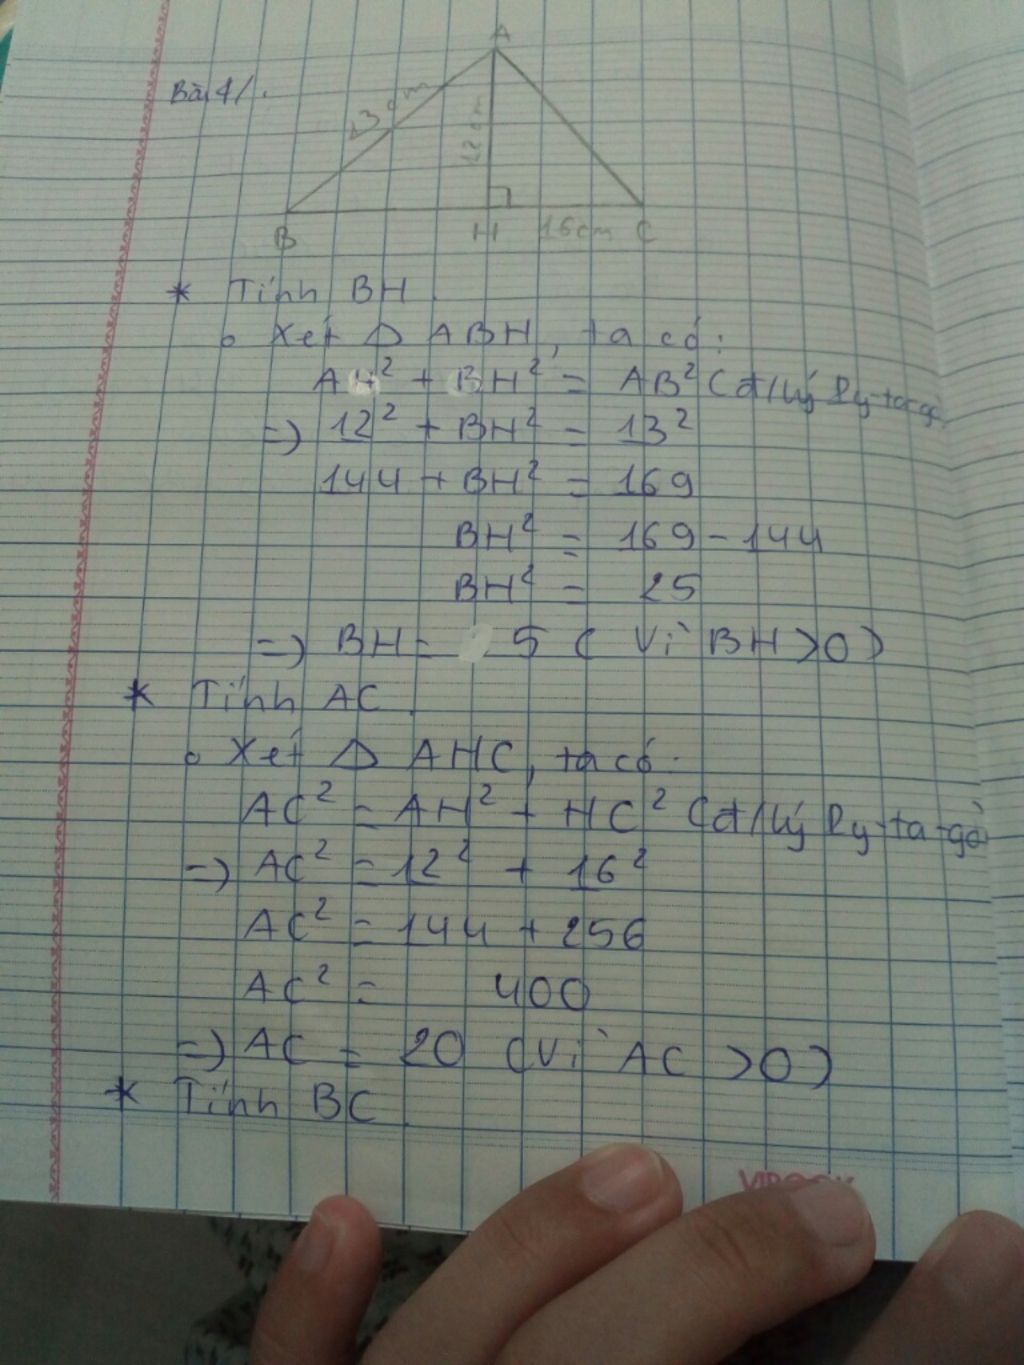 Bài 4/.
A
13 cm
12 cm
B H 16cm C
* Tính BH.
o Xét Δ ABH, ta có:
AH² + BH² = AB² (đ/lý Py-ta-go
=> 12² + BH² = 13²
144 + BH² = 169
BH² = 169 - 144
BH² = 25
=> BH = 5 ( Vì BH > 0 )
* Tính AC.
o Xét Δ AHC, ta có.
AC² = AH² + HC² (đ/lý Py-ta-go
=> AC² = 12² + 16²
AC² = 144 + 256
AC² = 400
=> AC = 20 (Vì AC > 0 )
* Tính BC.